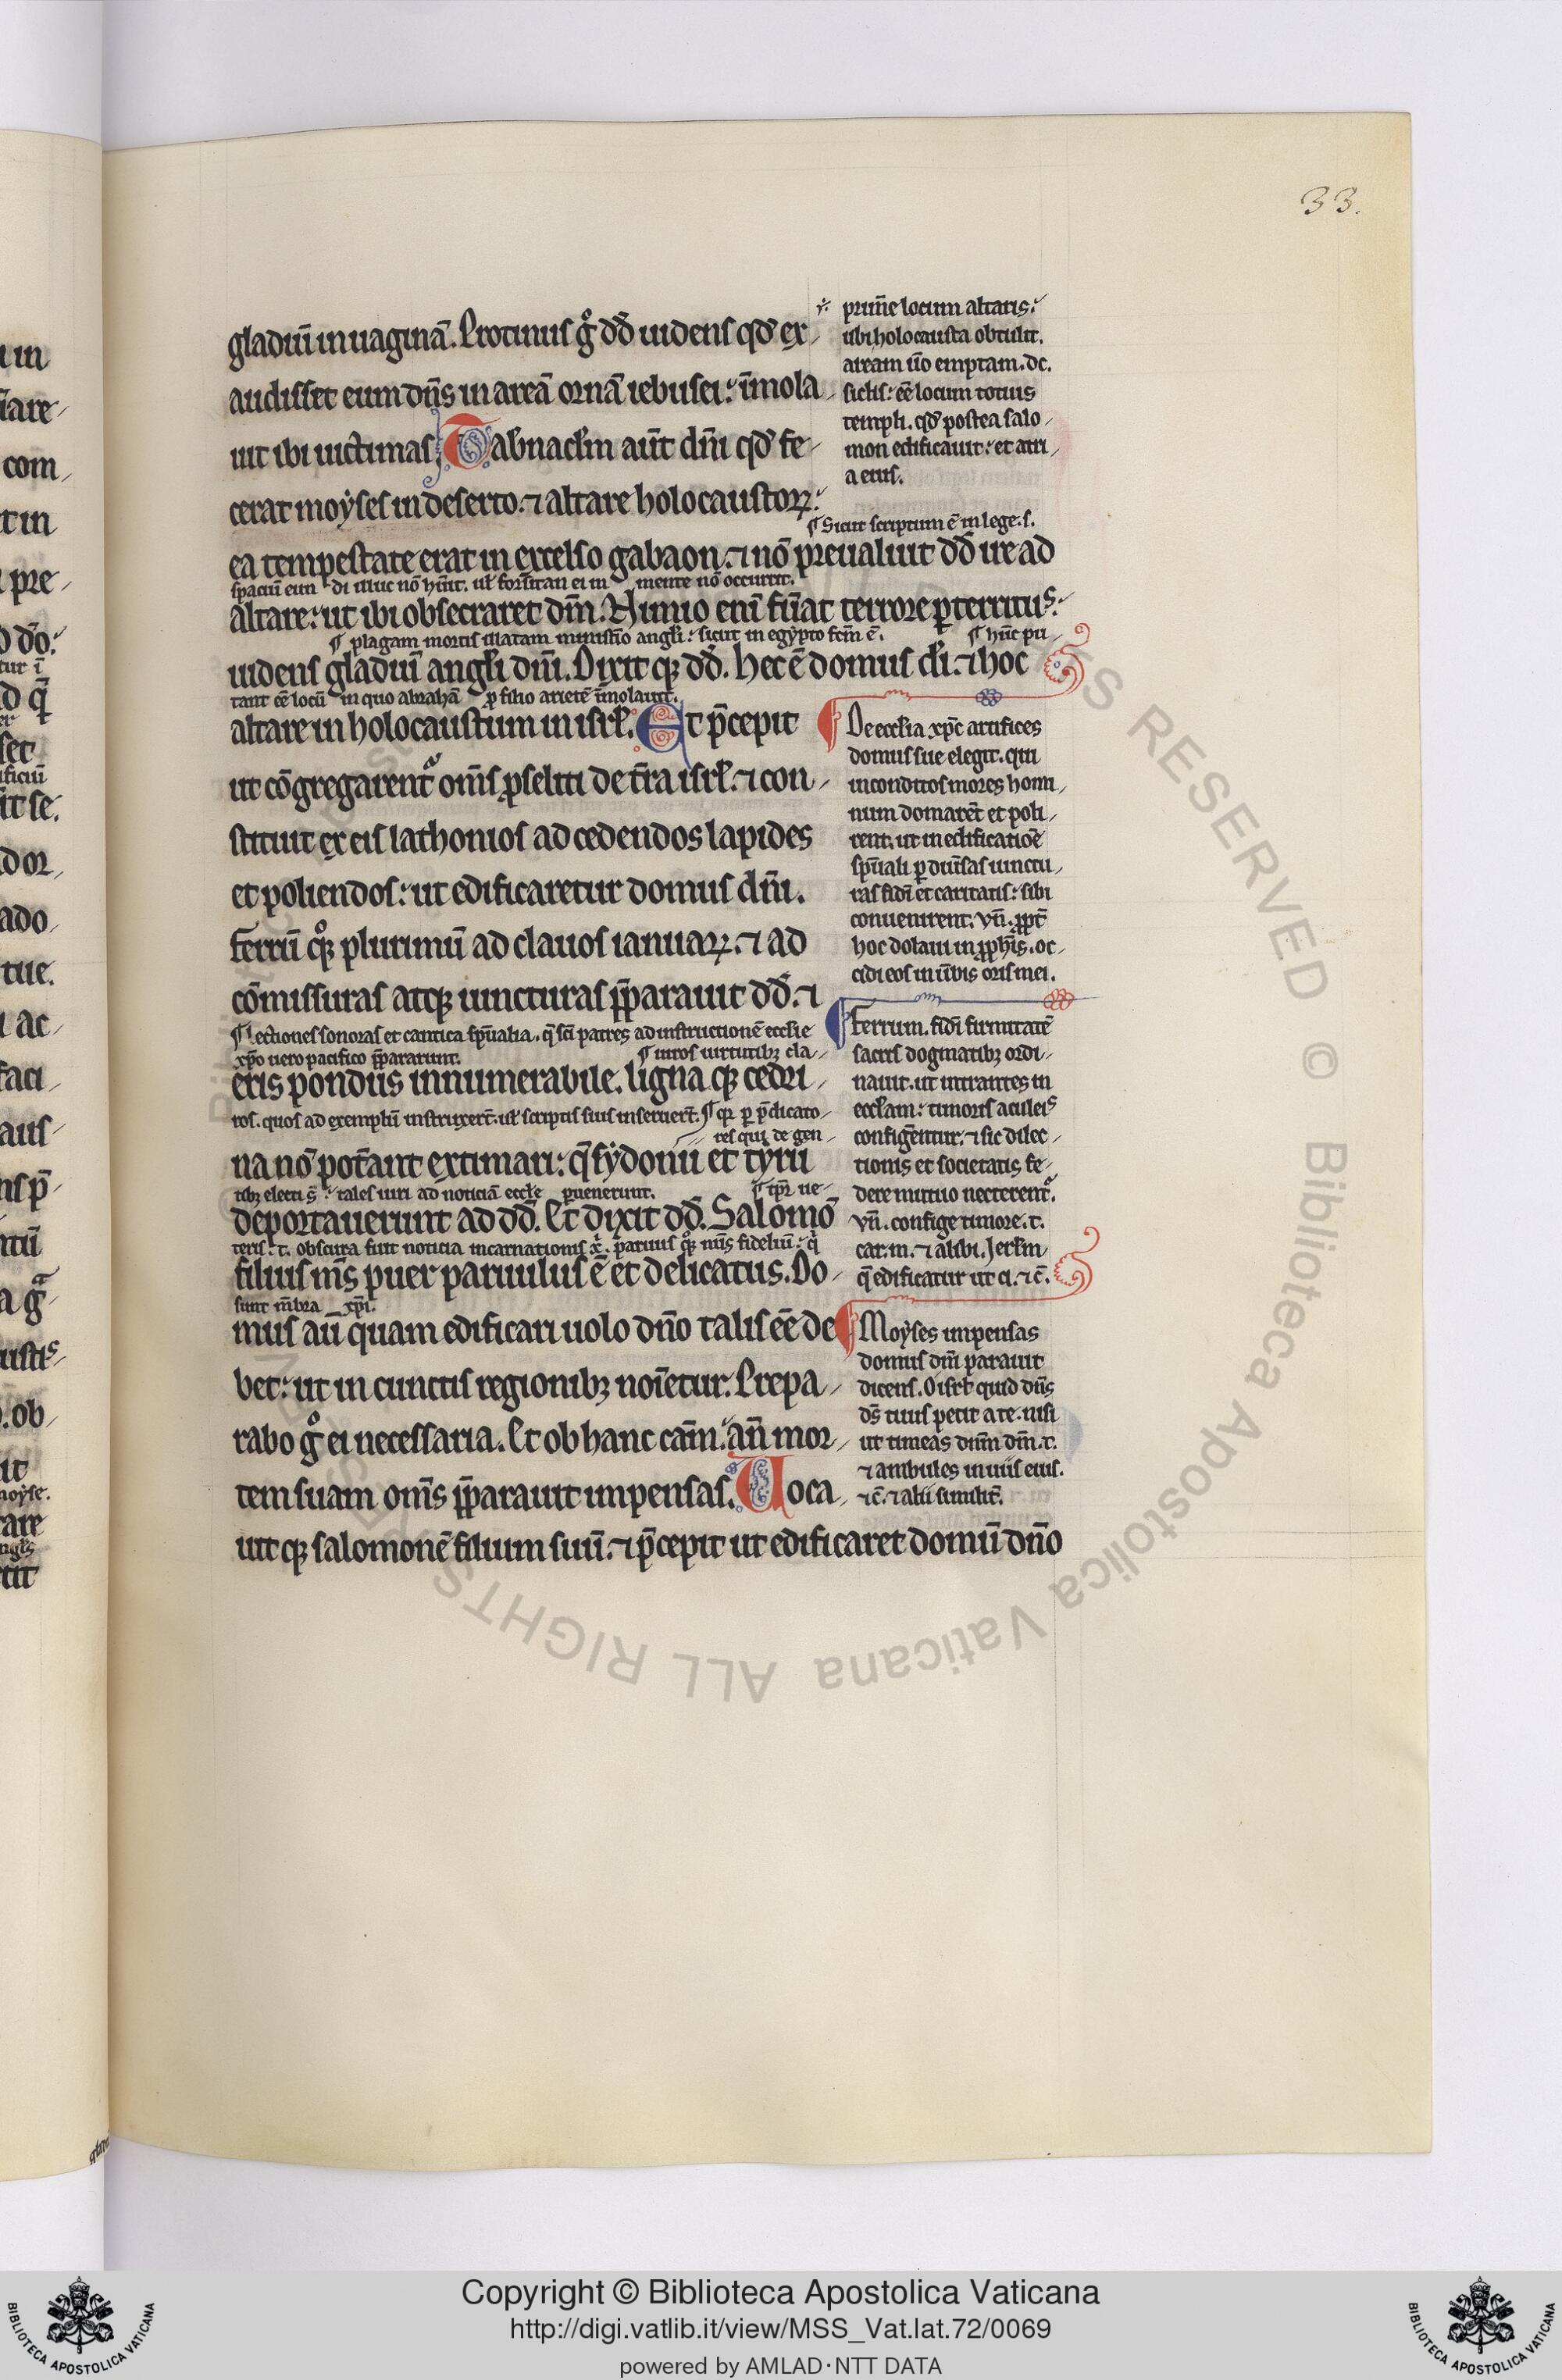 33.
gladiū in uaginā. Protinus gͦ dd̄ uidens qd̄ ex
audisset eum dn̄s in areā ornā iebusei: īmola
uit ibi uictimas. Tabnac̄lm aūt dn̄i qd̄ fe
cerat moẏses in deserto. ⁊ altare holocaustoꝝ:
ea tempestate erat in excelso gabaon. ⁊ nō preualuit dd̄ ire ad
altare: ut ibi obsecraret dm̄. Nimio enī fu̅at terrore ꝑterritus:
uidens gladiū angl̄i dn̄i. Dixit qꝫ dd̄. Hec ē domus di̅. ⁊ hoc
altare in holocaustum in isrl̄. Et p̄cepit
ut cōgregarent᷑ om̄s ꝓseliti de t̄ra isrl̄. ⁊ con
stituit ex eis lathomos ad cedendos lapides
et poliendos: ut edificaretur domus dn̄i.
Ferrū qͦꝫ plurimū ad clauos ianuaꝝ. ⁊ ad
cōmissuras atqꝫ iuncturas p̄parauit dd̄. ⁊
eris pondus innumerabile. ligna qꝫ cedri
na nō pot̄ant extimari: q̄ sẏdonii et tẏrii
deportauerunt ad dd̄. Et dixit dd̄. Salomō
filius m̄s puer paruulus ē et delicatus. Do
mus aū quam edificari uolo dn̄o talis eē de
bet: ut in cunctis regionibꝫ noīetur. Prepa
rabo gͦ ei necessaria. Et ob hanc cām: an̄ mor
tem suam om̄s p̄parauit impensas. Uoca
uit qꝫ salomonē filium suū. ⁊ p̄cepit ut edificaret domū dn̄o
¶ Sicut scriptum ē in lege. s.
spaciū eun di illuc nō hūit. ul̄ forsitan ei in mente nō occurrit.
¶ plagam mortis illatam minist̄io angl̄i: sicut in egẏpto fcm̄ ē.
¶ hūc pu
tant eē locū in quo abrahā ꝓ filio arietē īmolauit.
¶ Lectiones sonoras et cantica sp̄ualia. q̄ sc̄i patres ad instructionē eccl̄ie
xp̄o uero pacifico p̄pararunt.
¶ uiros uirtutibꝫ cla
ros. quos ad exemplū instruxer̄t. ul̄ scriptis suis inseruer̄t. ¶ qꝫ ꝑ p̄dicato
res qui de gen
tibꝫ electi s̄: tales uiri ad noticiā eccl̄e ꝑuenerunt.
¶ tp̄r ue
teris. t. obscura fuit noticia incarnationis x̄. paruus qͦꝫ nūs fideliū: q̄
sunt m̄bra xp̄i.
prim̄e locum altaris:
ubi holocausta obtulit.
aream ūo emptam. dc.
siclis: eē locum totius
templi. qd̄ postea salo
mon edificauit: et atri
a eius.
De eccl̄ia xp̄c artifices
domus sue elegit. qui
inconditos mores homi
num domarēt et poli
rent: ut in edificatiōe
sp̄uali ꝑ diūsas iunctu
ras fidī et caritatis: sibi
conuenirent. vn̄. ꝓpt̄
hoc dolaui in ꝓph̄is. oc
cidi eos in ūbis oris mei.
Ferrum. fidī firmitatē
sacris dogmatibꝫ ordi
nauit. ut intrantes in
eccl̄am: timoris aculeis
configēntur. ⁊ sic dilec
tionis et societatis fe
dere mutuo necterent᷑.
vn̄. confige timore. t.
car. m. ⁊ alibi. Jerl̄m
q̄ edificatur ut ci. ⁊c̄.
Moẏses impensas
domus dn̄i parauit
dicens. O isrl̄ quid dn̄s
ds̄ tuus petit a te. nisi
ut timeas dnm̄ dm̄. t.
⁊ ambules in uiis eius.
⁊c̄. ⁊ alii similit̄.
Biblioteca Apostolica Vaticana ALL RIGHTS RESERVED ©
Copyright © Biblioteca Apostolica Vaticana
http://digi.vatlib.it/view/MSS_Vat.lat.72/0069
powered by AMLAD·NTT DATA
BIBLIOTECA APOSTOLICA VATICANA
BIBLIOTECA APOSTOLICA VATICANA